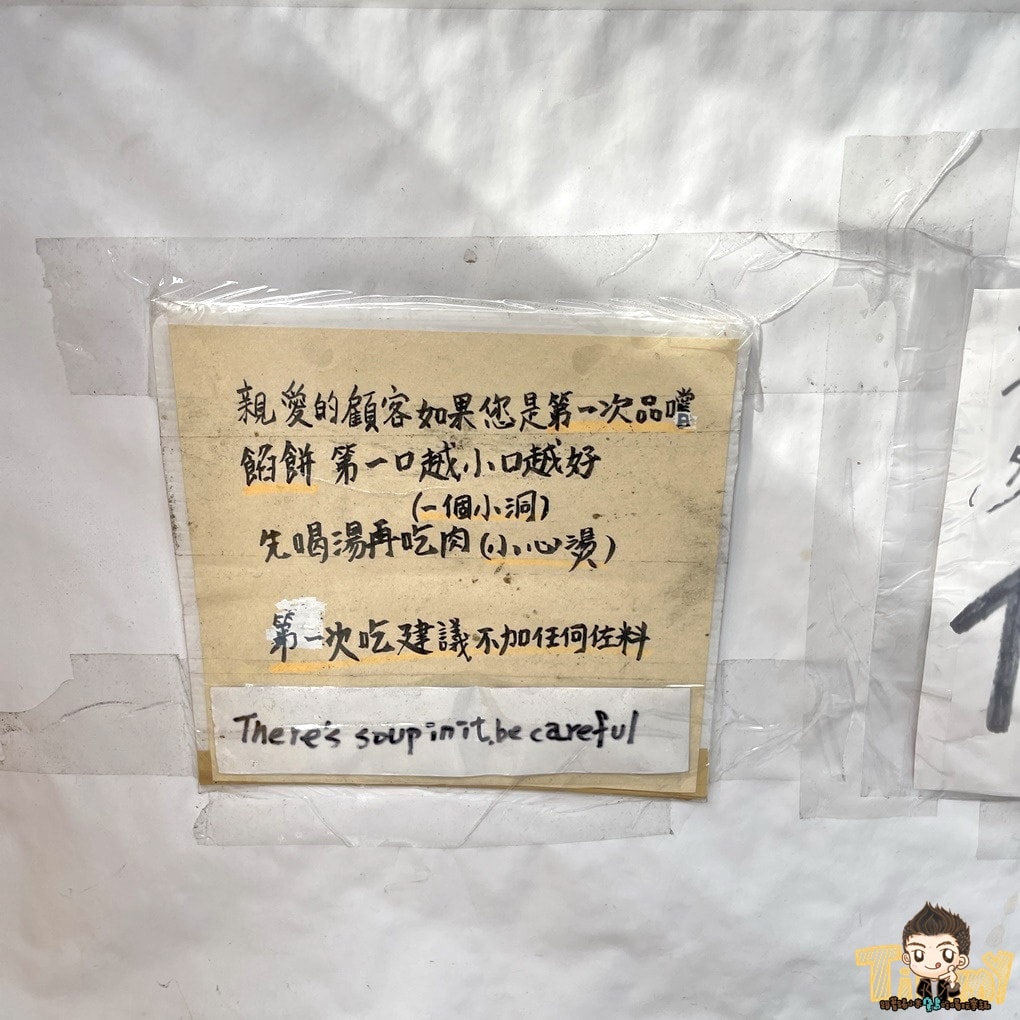 親愛的顧客如果您是第一次品嚐
餡餅 第一口越小口越好
(一個小洞)
先喝湯再吃肉(小心燙)
第一次吃建議不加任何佐料
There's soup in it, be careful